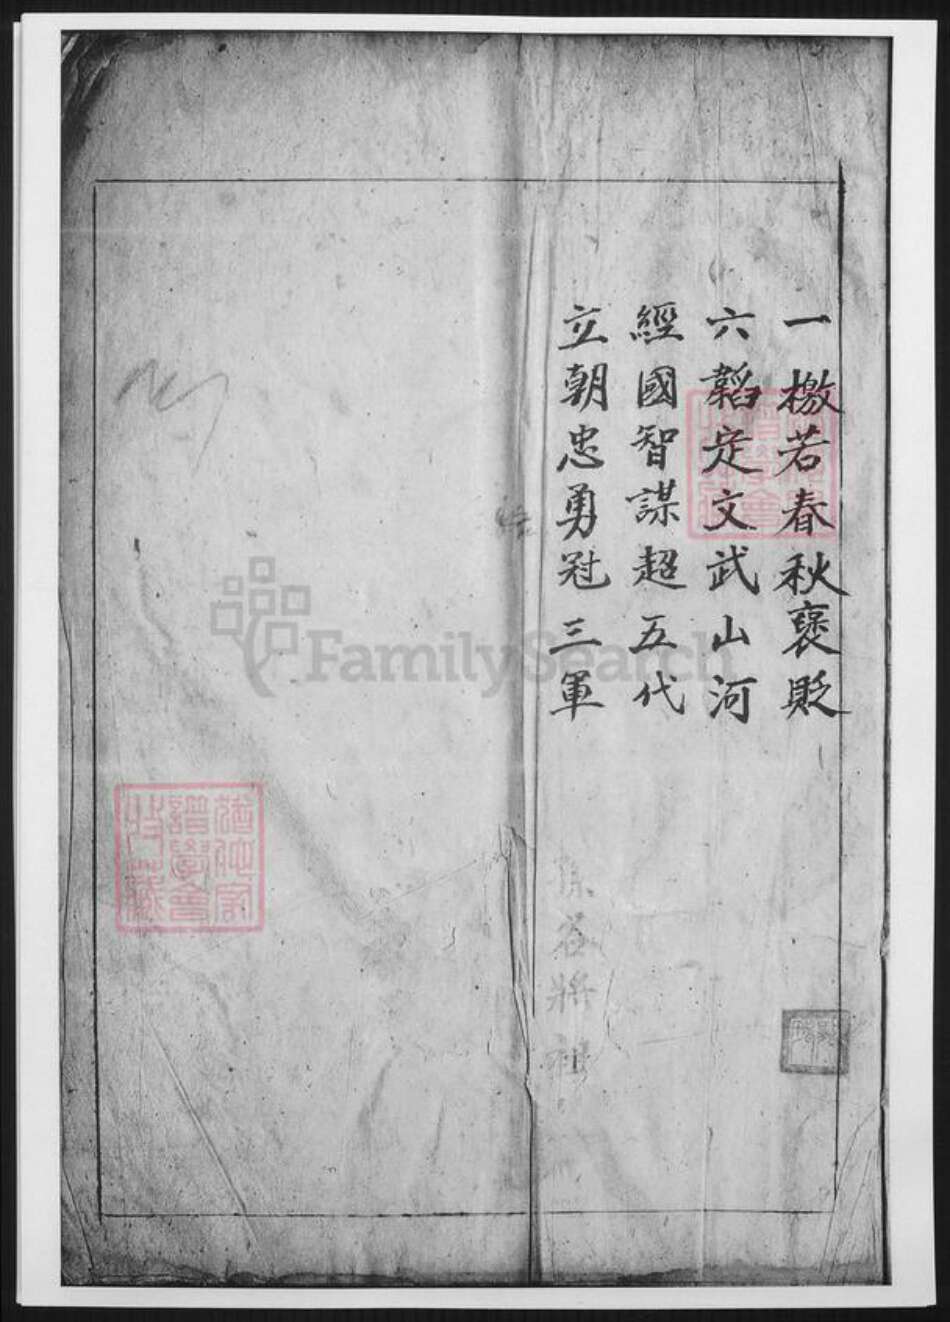 一檄若春秋褒貶
六韜定文武山河
經國智謀超五代
立朝忠勇冠三軍
FamilySearch